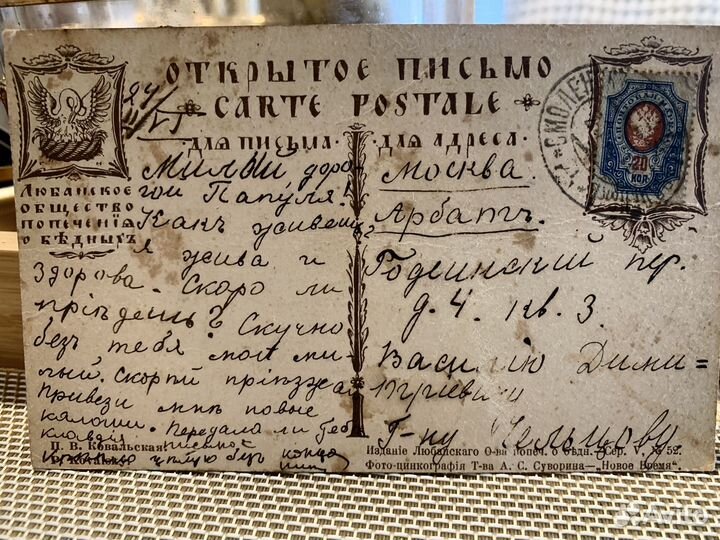 ОТКРЫТОЕ ПИСЬМО
CARTE POSTALE
ДЛЯ ПИСЬМА
ДЛЯ АДРЕСА
ЛЮБАНСКОЕ
ОБЩЕСТВО
ПОПЕЧЕНІЯ
О БѢДНЫХЪ
Милый доро
гой Папуля!
Какъ живешь?
я жива и
Здорова. Скоро ли
пріѣдешь? Скучно
безъ тебя мой ми
лый. Скорѣй пріѣзжай
Привези мнѣ новые
калоши. Передала ли тебѣ
Клавдія
цѣлую безъ конца
Москва.
Арбатъ.
пер.
д. 4. кв. 3.
Василію Дими=
тріевичу
Г-ну Чельцову
СМОЛЕН
20
КОП
П. В. Ковальская
Изданіе Любанскаго О-ва попеч. о бѣдн. Сер. V, № 52.
Фото-цинкографія Т-ва А. С. Суворина—„Новое Время".
Avito